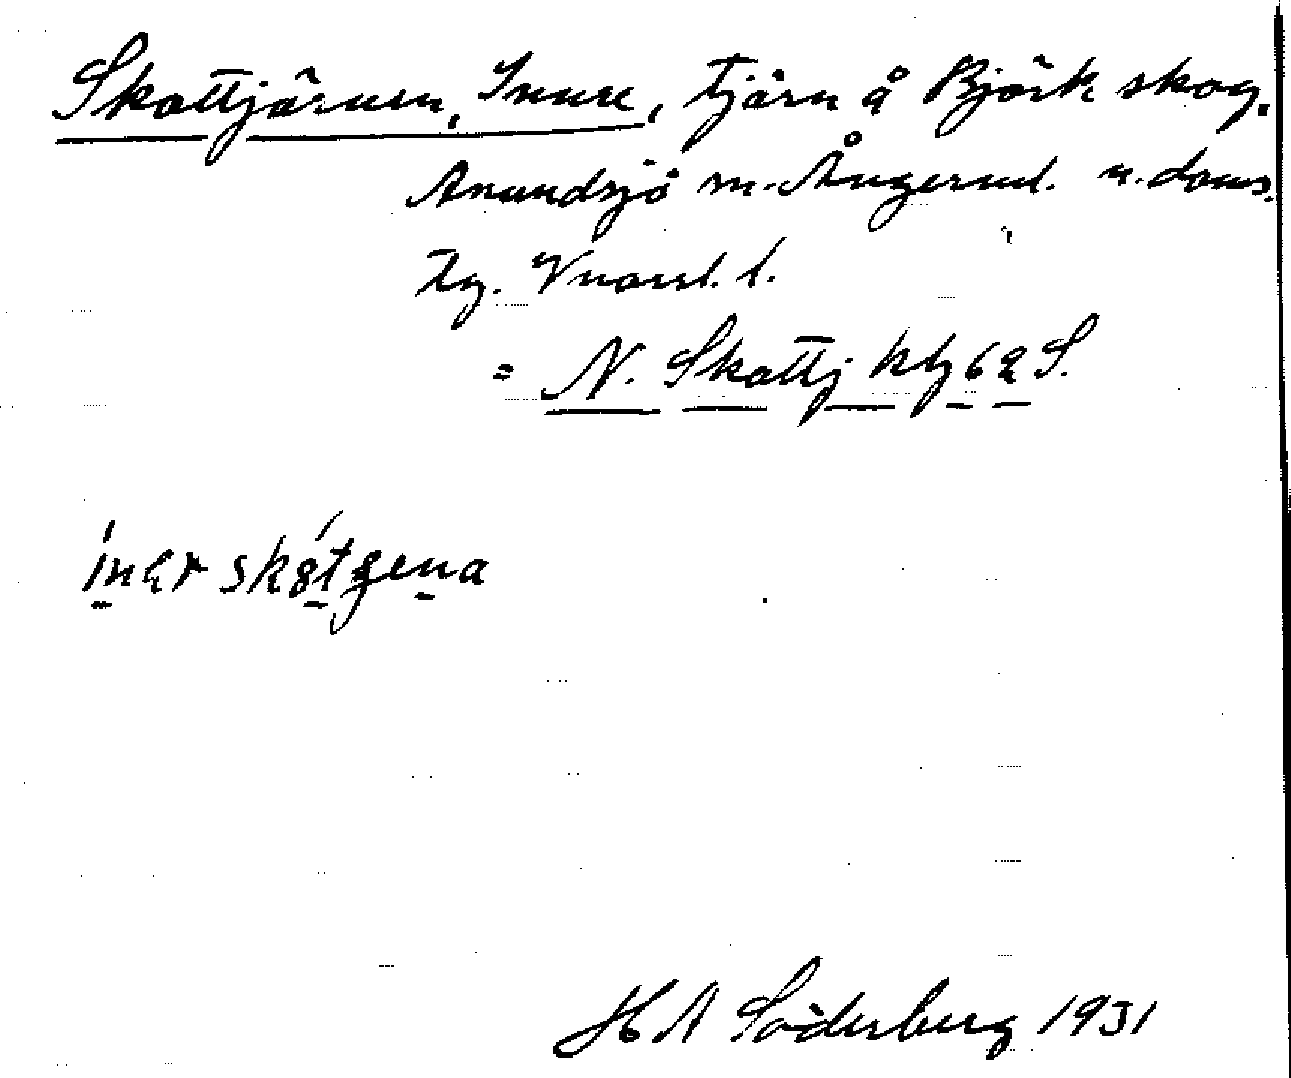 Skattjärnen, Inre, tjärn å Björk skog.
Anundsjö m. Ångerml. n. doms.
tg. Vnorrl. l.
= N. Skattj kbl 62 S.
ina̱r skátgena
H A Söderberg 1931